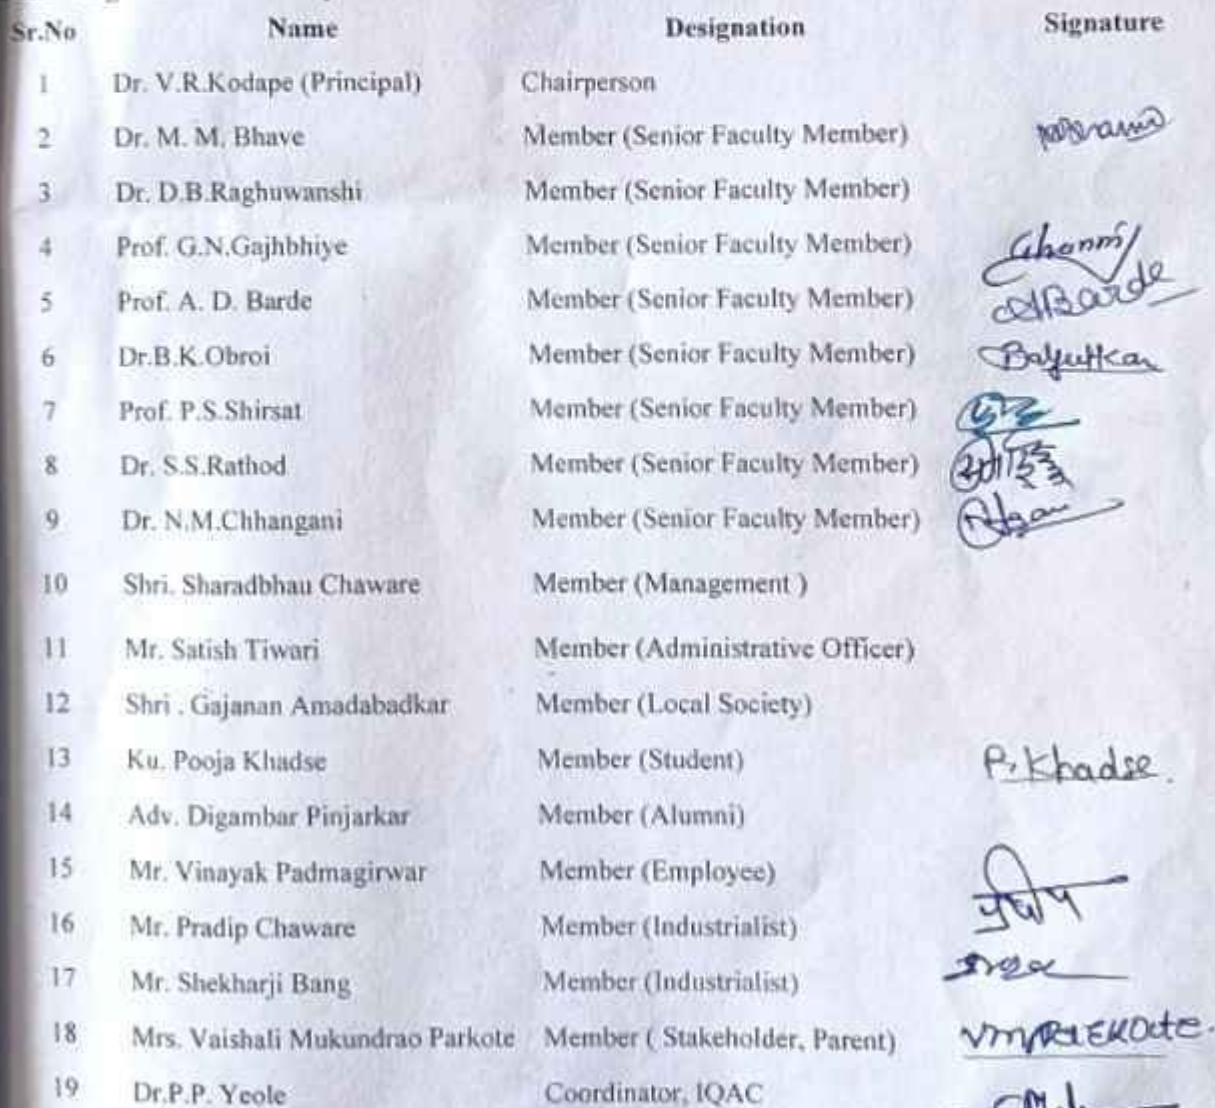 Sr.No Name Designation Signature
1 Dr. V.R.Kodape (Principal) Chairperson
2 Dr. M. M. Bhave Member (Senior Faculty Member)
3 Dr. D.B.Raghuwanshi Member (Senior Faculty Member)
4 Prof. G.N.Gajhbhiye Member (Senior Faculty Member)
5 Prof. A. D. Barde Member (Senior Faculty Member) ABarde
6 Dr.B.K.Obroi Member (Senior Faculty Member)
7 Prof. P.S.Shirsat Member (Senior Faculty Member)
8 Dr. S.S.Rathod Member (Senior Faculty Member)
9 Dr. N.M.Chhangani Member (Senior Faculty Member)
10 Shri. Sharadbhau Chaware Member (Management )
11 Mr. Satish Tiwari Member (Administrative Officer)
12 Shri . Gajanan Amadabadkar Member (Local Society)
13 Ku. Pooja Khadse Member (Student) P. Khadse.
14 Adv. Digambar Pinjarkar Member (Alumni)
15 Mr. Vinayak Padmagirwar Member (Employee)
16 Mr. Pradip Chaware Member (Industrialist)
17 Mr. Shekharji Bang Member (Industrialist)
18 Mrs. Vaishali Mukundrao Parkote Member ( Stakeholder, Parent)
19 Dr.P.P. Yeole Coordinator, IQAC